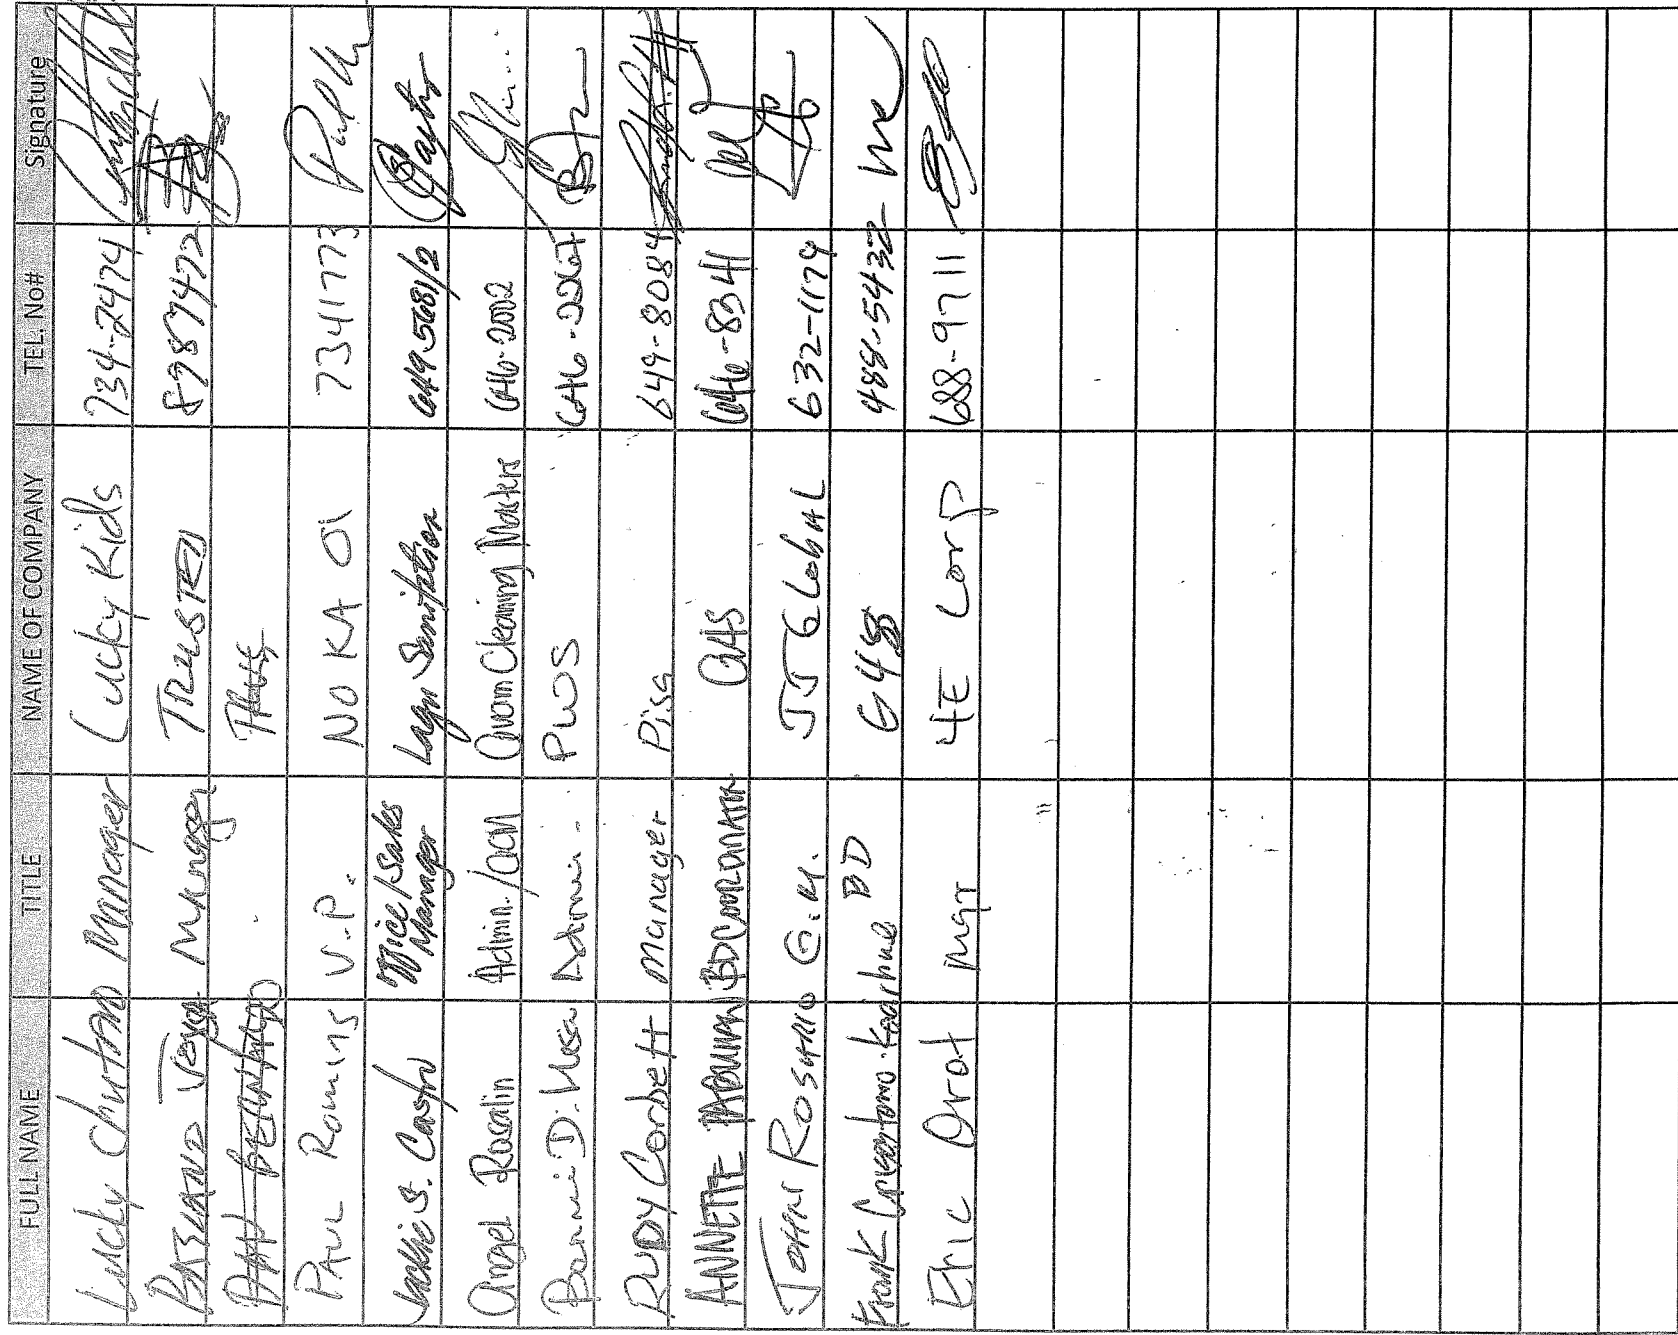 FULL NAME TITLE NAME OF COMPANY TEL. No# Signature
Lucky Chutaro Manager Lucky Kids 734-2474
Manager TRUSTED 8987472
PAUL Romins V.P. NO KA OI 7341773
Jackie S. Castro Office/Sales Manager Lagu Sanitation 649 5681/2
Angel Rosalin Admin./QCM Quorn Cleaning Masters 646-2002
Bonnie D. Mesa Admin. PWS 646-2267
RUDY Corbett Manager Pisa 649-8084
ANNETTE PABLINAN BD COORDINATR GHS 646-8341
ROSARIO G.M. JJ GLobAL 632-1179
Frank BD G4S 488-5432
Eric Orot mgr 4E Corp 688-9711